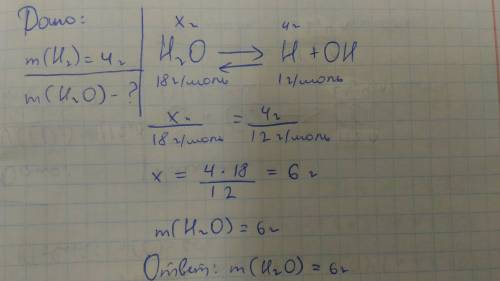 Дано:
m(H₂) = 4г
m(H₂O) - ?
xг 4г
H₂O ⇌ H + OH
18г/моль 1г/моль
xг/18г/моль = 4г/12г/моль
x = 4·18/12 = 6г
m(H₂O) = 6г
Ответ: m(H₂O) = 6г